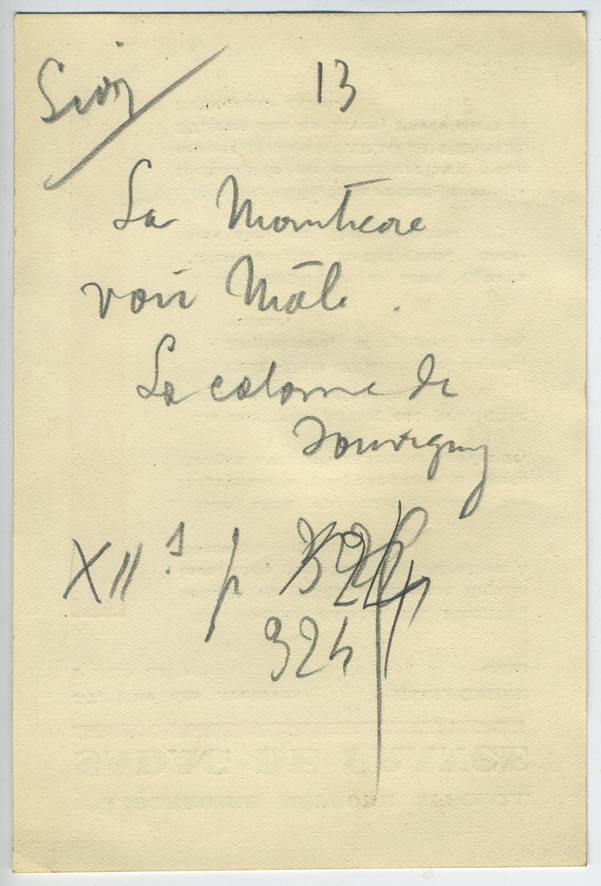 13
La Manticore
voir Mâle.
La colonne de
Souvigny
XII s p
324